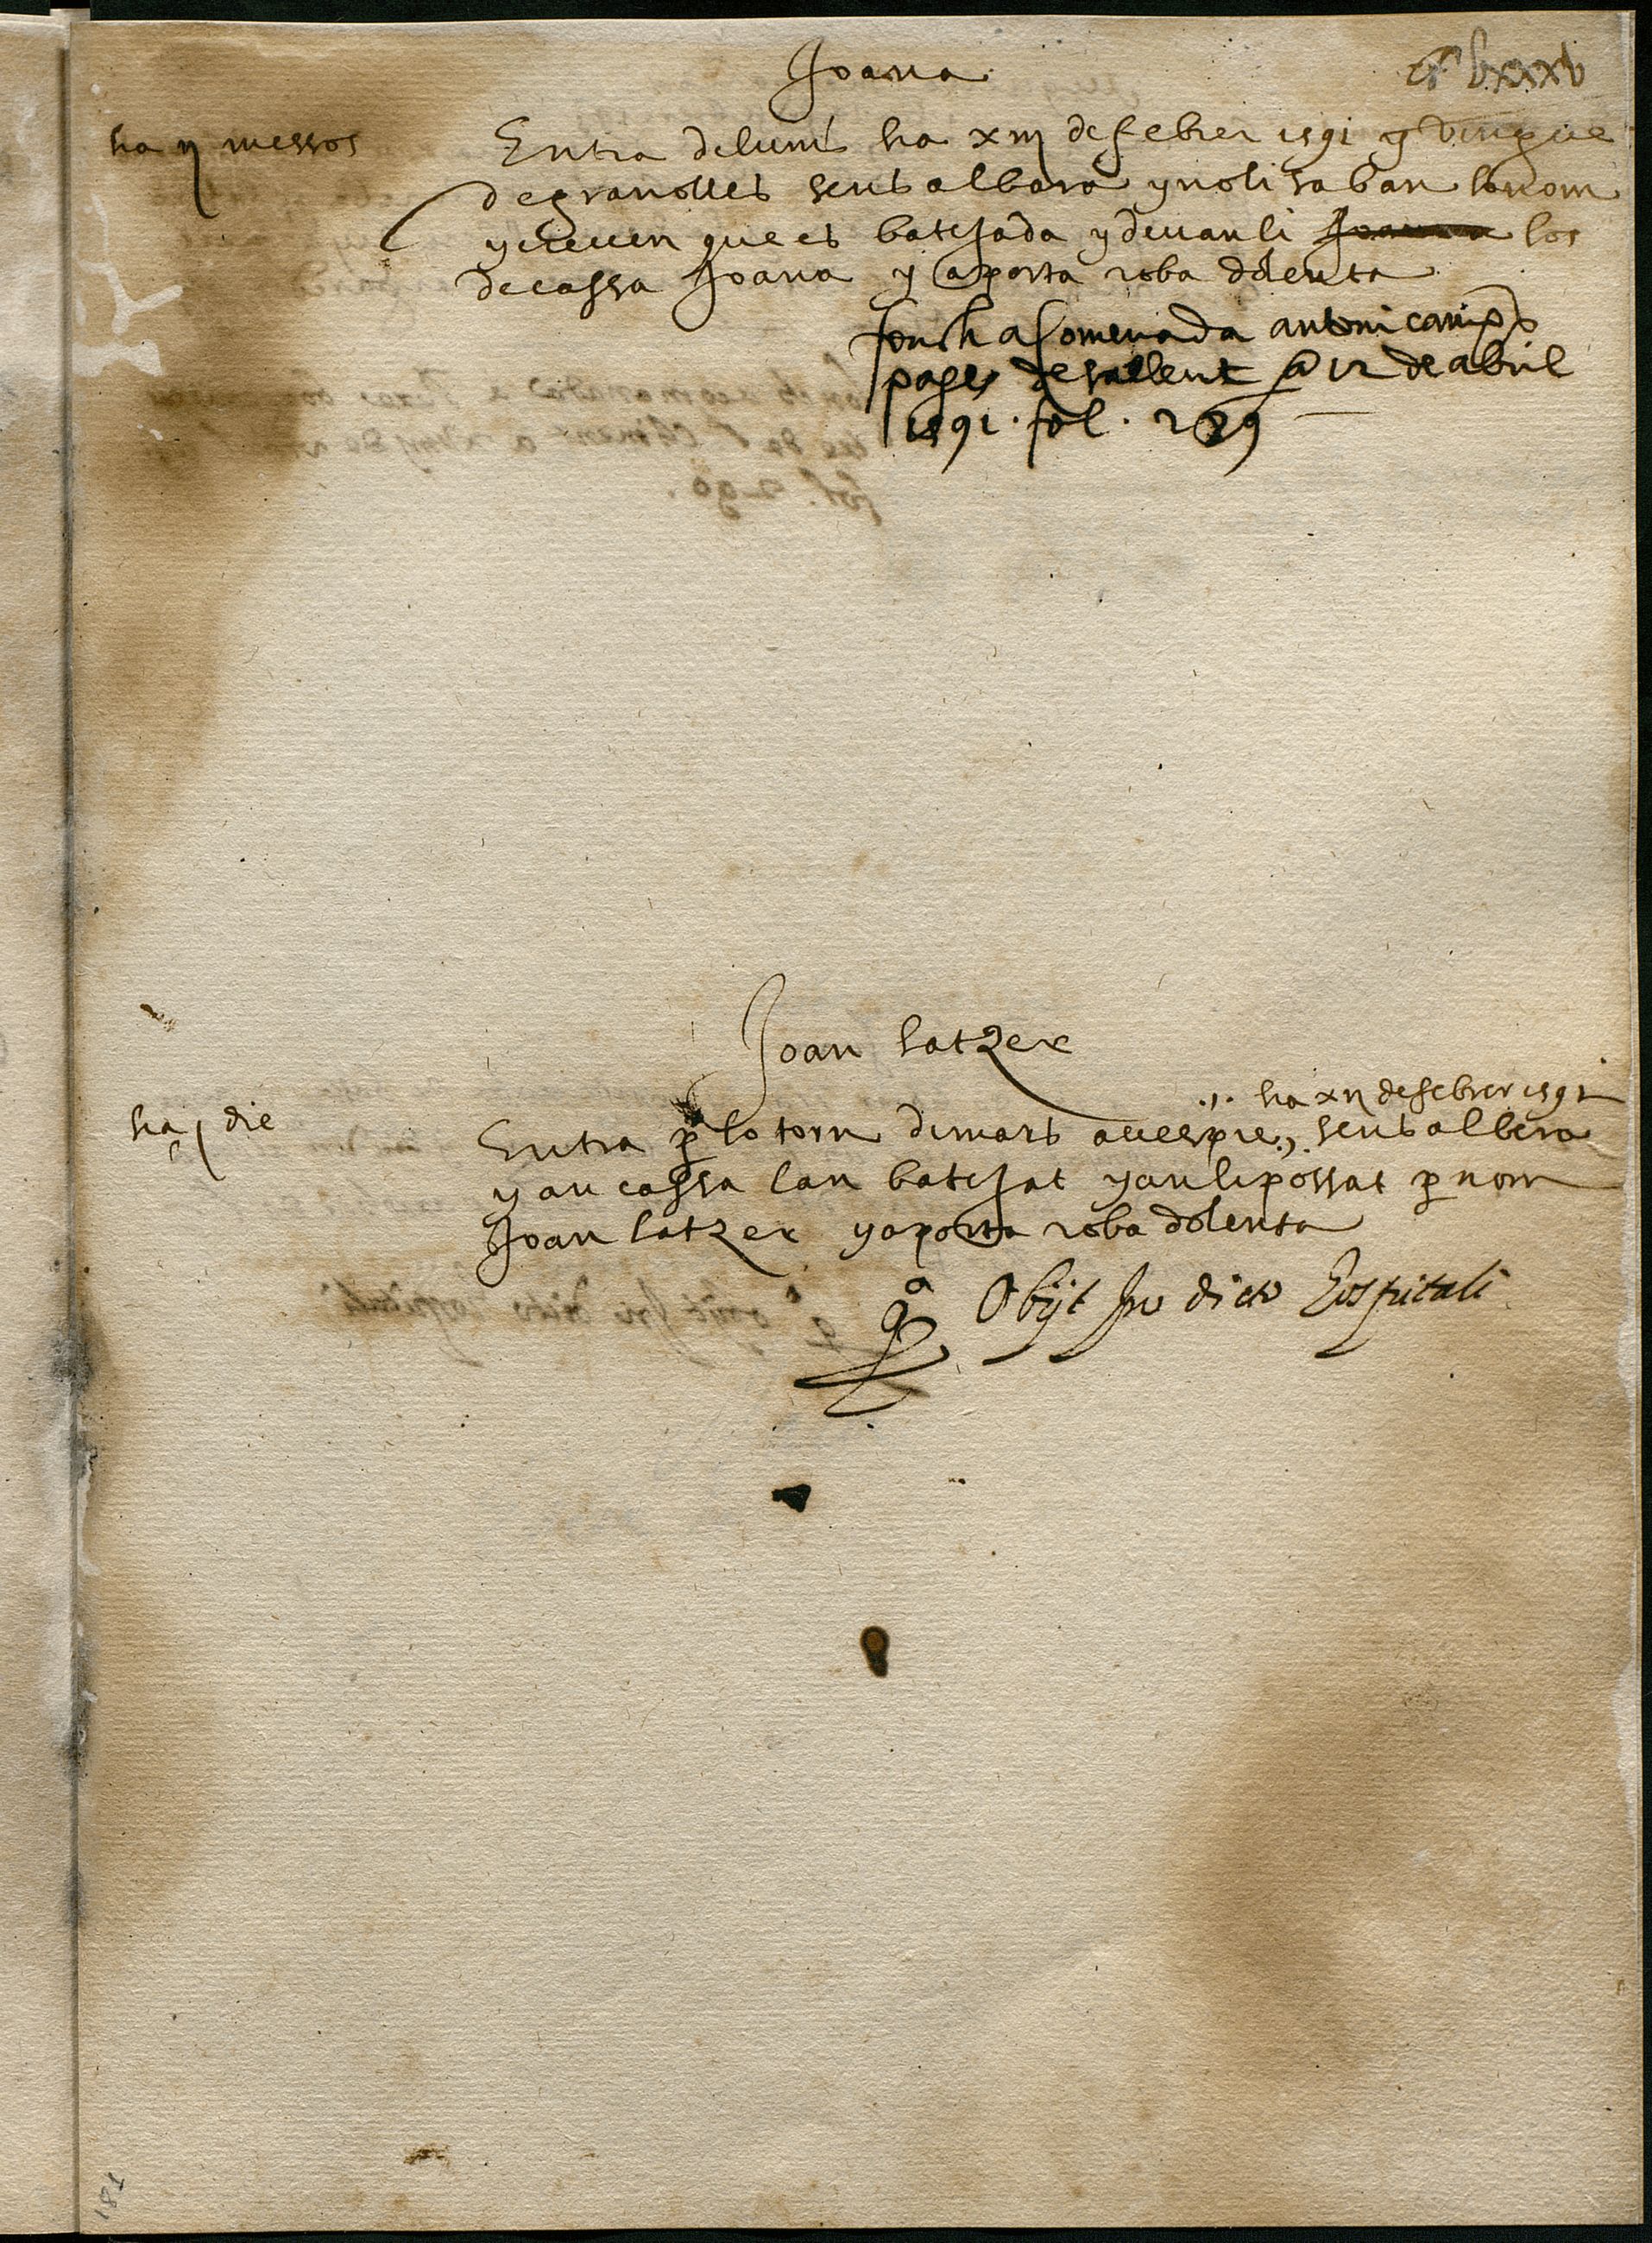 Joana
clxxxv
ha ij messos
Entra diluns ha xiij de febrer 1591 y vingue
de granolles sens albara y no li saban lo nom
y creuen que es batejada y diuanli Joana los
de cassa Joana y aporta roba dolenta
fonch acomenada antoni camps
pages de sallent a 12 de abril
1591. fol. 229
Joan latzer
.,. ha xij de febrer 1591
ha j die
Entra per lo torn dimars a vespre ., sens albara
y an cassa lan batejat y an li possat per nom
Joan latzer y aporta roba dolenta
Obijt In dicto Hospitali
181